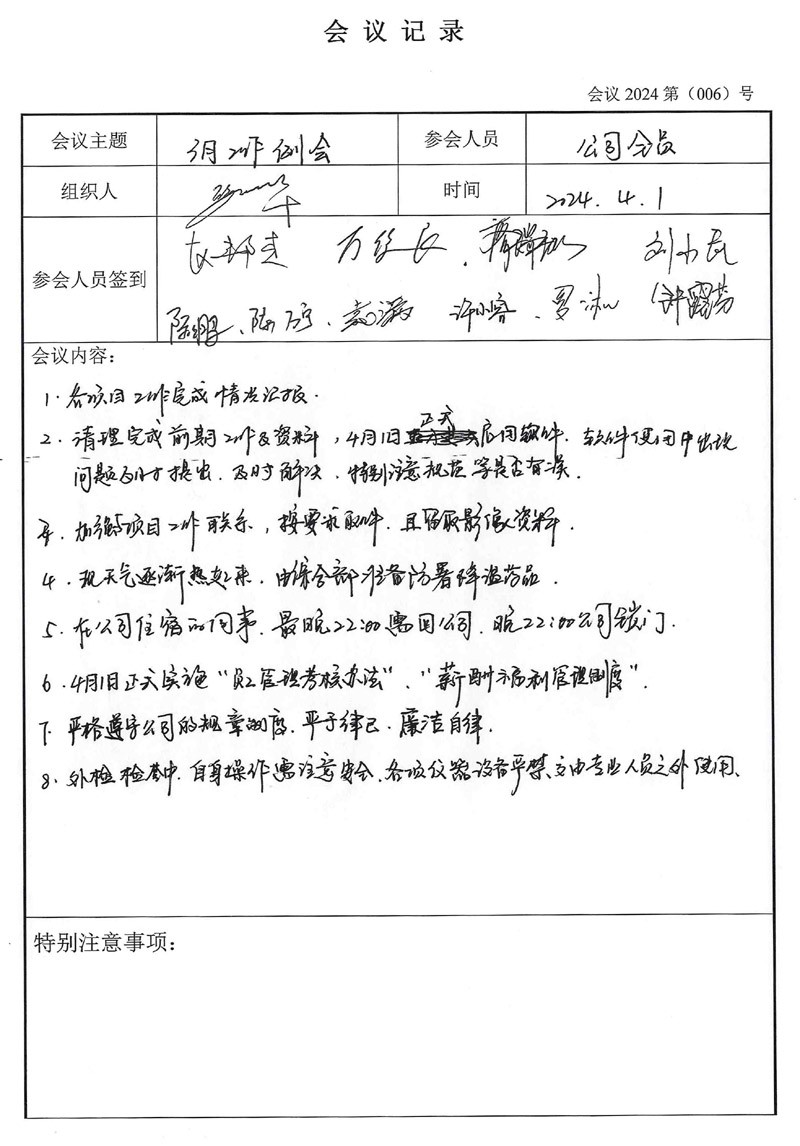 会议记录
会议 2024 第（006）号
会议主题 3月工作例会 参会人员 公司全员
组织人 时间 2024.4.1
参会人员签到 万 刘小
陈鹏、陆万宁、袁 许小容、罗 钟露芳
会议内容：
1. 各项目工作完成情况汇报.
2. 清理完成前期工作及资料，4月1日正式启用软件. 软件使用中出现
问题及时提出. 及时解决. 特别注意规范等是否有误.
3. 加强与项目工作联系，按要求取件. 且留取影像资料.
4. 现天气逐渐热起来. 由综合部准备防署降温药品.
5. 在公司住宿的同事. 最晚22:00需回公司. 晚22:00公司锁门.
6. 4月1日正式实施“员工管理考核办法”、“薪酬福利管理制度”.
7. 严格遵守公司的规章制度. 严于律己. 廉洁自律.
8. 外检检查中. 自身操作需注意安全. 各项仪器设备严禁交由专业人员之外使用.
特别注意事项：